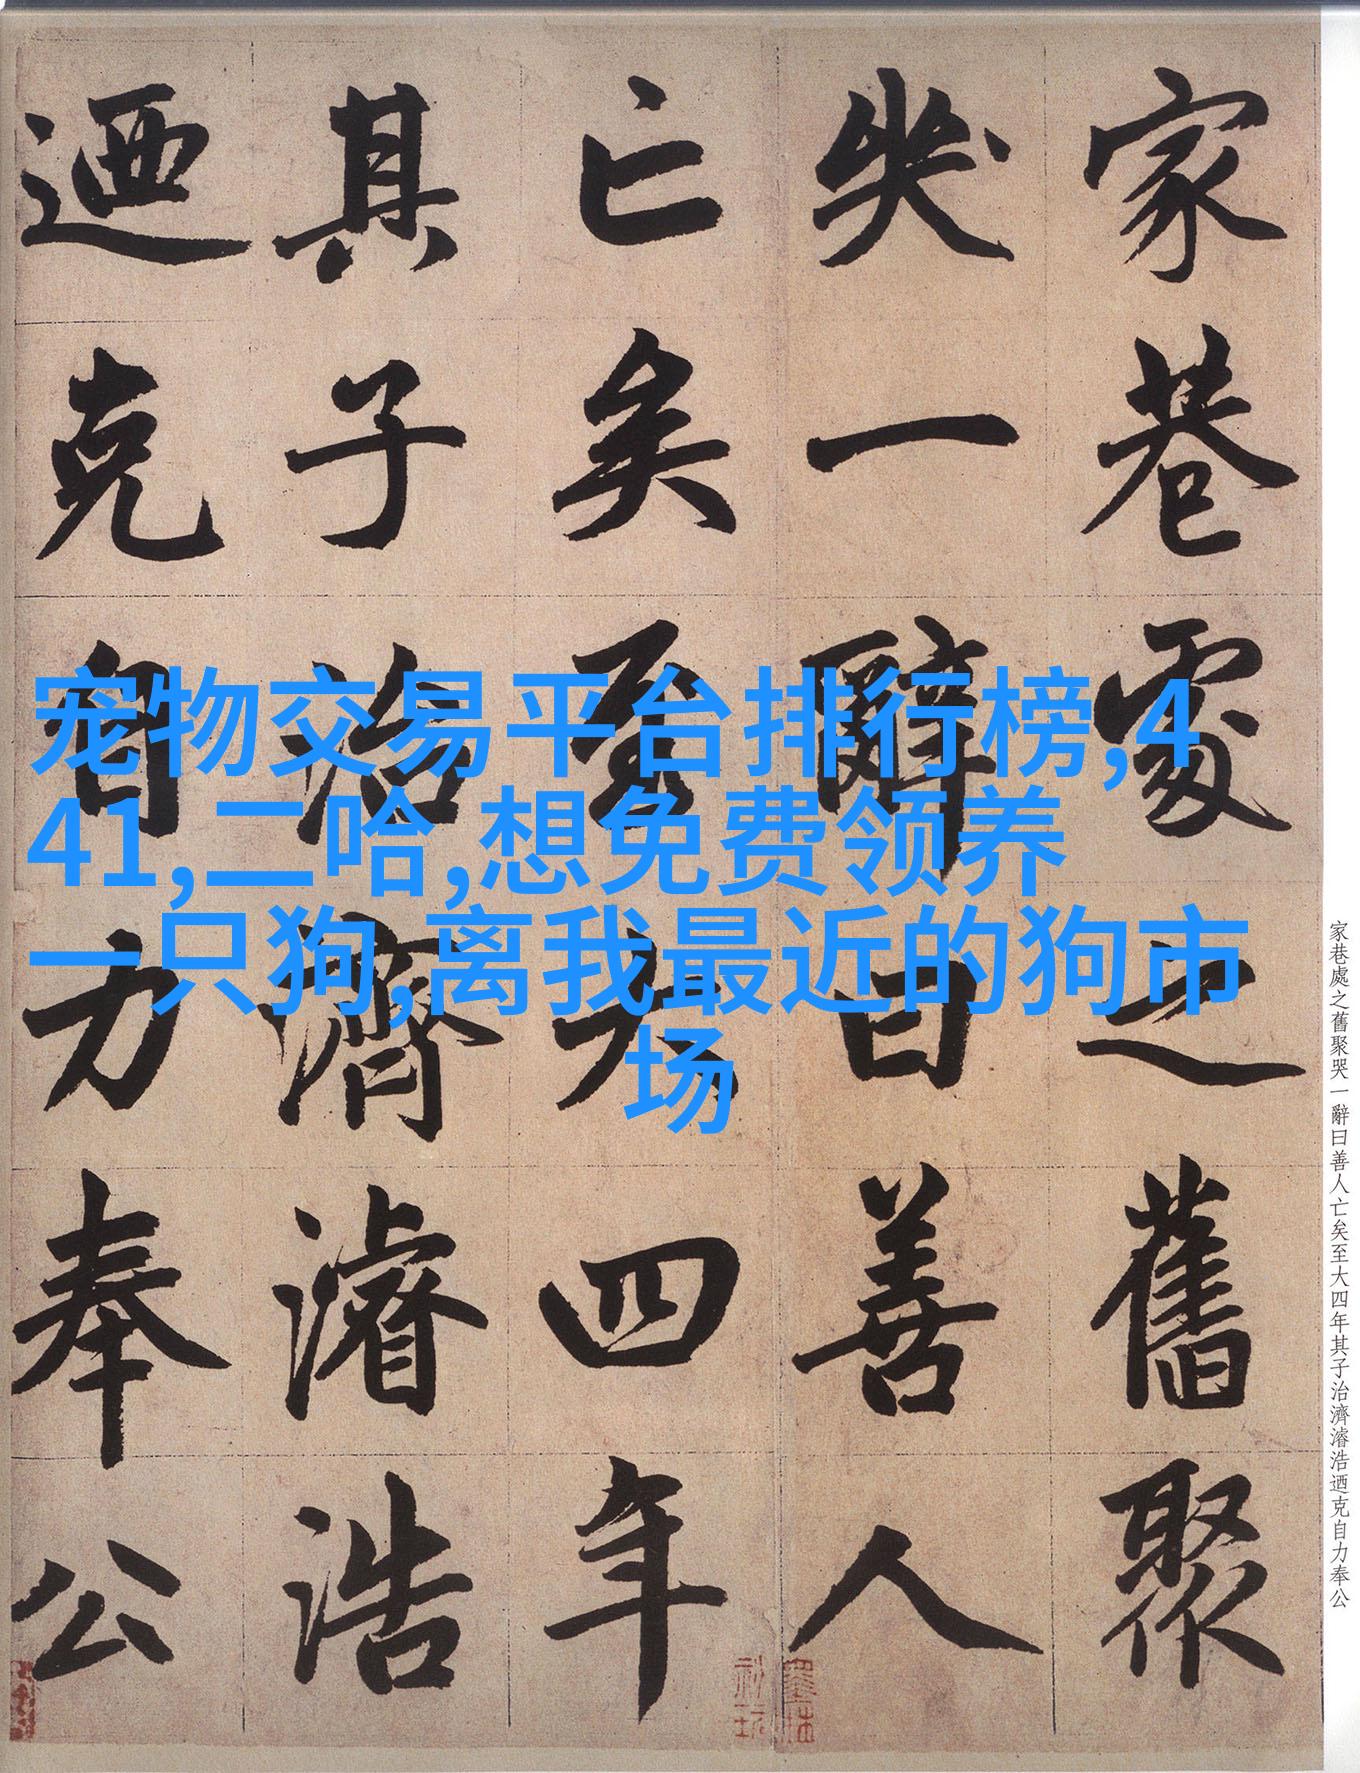 宠物交易平台排行榜,4
41,二哈,想免费领养
一只狗,离我最近的狗市
场
家巷處之舊聚
哭一辭曰善人
亡矣至大四年
其子治濟濬浩
迺克自力奉公
家巷處之舊聚哭一辭曰善人亡矣至大四年其子治濟濬浩迺克自力奉公